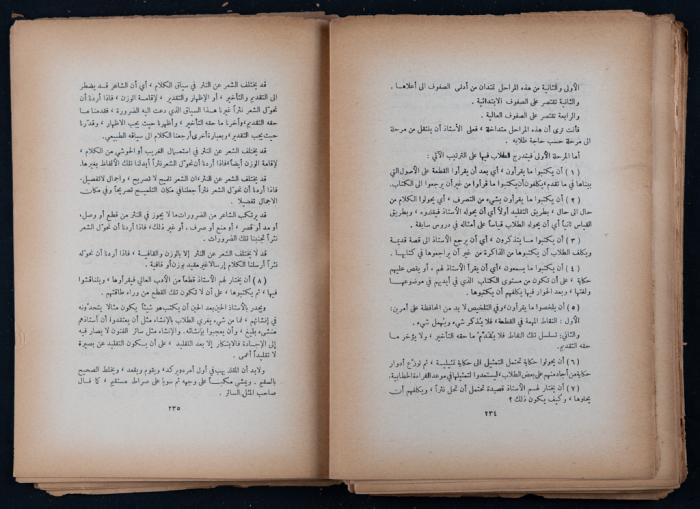 الأولى والثانية من هذه المراحل تمتدان من أدنى الصفوف الى أعلاها .
والثانية تقتصر على الصفوف الابتدائية .
والرابعة تقتصر على الصفوف العالية .
فأنت ترى أن هذه المراحل متداخلة ، فعلى الأستاذ أن ينتقل من مرحلة
الى مرحلة حسب حاجة طلابه .
أما المرحلة الأولى فيتدرج الطلاب فيها على الترتيب الآتي :
( ١ ) أن يكتبوا ما يقرأون ، أي بعد أن يقرأوا القطعة على الأصول التي
بيناها في ما تقدم يكلفون أن يكتبوا ما قرأوا من غير أن يرجعوا الى الكتاب.
( ٢ ) أن يكتبوا ما يقرأون بشيء من التصرف ، أي أن يحولوا الكلام من
حال الى حال ، بطريق التقليد أولاً أي أن يحوله الأستاذ فيقلدوه، وبطريق
القياس ثانياً أي أن يحوله الطلاب قياساً على أمثاله في دروس سابقة .
( ٣ ) أن يكتبوا ما يتذكرون ، أي أن يرجع الأستاذ الى قصة قديمة
ويكلف الطلاب أن يكتبوها من الذاكرة من غير أن يراجعوها في كتابها .
( ٤ ) أن يكتبوا ما يسمعون ، أي أن يقرأ الأستاذ لهم ، أو يقص عليهم
حكاية ، على أن تكون من مستوى الكتاب الذي في أيديهم في موضوعها
ولغتها ، وبعد الحوار فيها يكلفهم أن يكتبوها .
( ٥ ) أن يلخصوا ما يقرأون ، وفي التلخيص لا بد من المحافظة على أمرين:
الأول : النقاط المهمة في القطعة ، فلا يتذكر شيء ويهمل شيء .
والثاني: تسلسل تلك النقاط فلا يقدم ما حقه التأخير ، ولا يؤخر ما
حقه التقديم.
( ٦ ) أن يحولوا حكاية تحتمل التمثيل الى حكاية تمثيلية ، ثم توزع أدوار
حكاية من أجادتهم على بعض الطلاب، ليستعدوا لتمثيلها في موعد القراءة الخطابية.
( ٧ ) أن يختار لهم الأستاذ قصيدة تحتمل أن تحل نثراً ، ويكلفهم أن
يحلوها ، وكيف يكون ذلك ؟
٢٣٤
قد يختلف الشعر عن النثر في سياق الكلام ، أي أن الشاعر قد يضطر
الى التقديم والتأخير ، أو الإظهار والتقدير ، لإقامة الوزن ، فاذا أردنا أن
نحول الشعر نثراً غيرنا هذا السياق الذي دعت اليه الضرورة ، فقدمنا ما
حقه التقديم، وأخرنا ما حقه التأخير ، وأظهرنا حيث يجب الاظهار ، وقدرنا
حيث يجب التقدير، وبعبارة أخرى أرجعنا الكلام الى سياقه الطبيعي.
قد يختلف الشعر عن النثر في استعمال الغريب أو الحوشي من الكلام ،
لإقامة الوزن أيضاً، فاذا أردنا أن نحول الشعر نثراً أبدلنا تلك الألفاظ بغيرها.
قد يختلف الشعر عن النثر، ان الشعر تلميح لا تصريح ، واجمال لا تفصيل.
فاذا أردنا أن نحول الشعر نثراً جعلنا في مكان التلميح تصريحاً وفي مكان
الاجمال تفصيلا .
قد يرتكب الشاعر من الضرورات ما لا يجوز في النثر من قطع أو وصل،
أو مد أو قصر ، أو منع أو صرف ، أو غير ذلك، فاذا أردنا أن نحول الشعر
نثراً تجنبنا تلك الضرورات .
قد لا يختلف الشعر عن النثر إلا بالوزن والقافية ، فاذا أردنا أن نحوله
نثراً أرسلنا الكلام إرسالا غير مقيد بوزن أو قافية .
( ٨ ) أن يختار لهم الأستاذ قطعاً من الأدب العالي فيقرأوها ، ويتناقشوا
فيها ، ثم يكتبوها ، على أن لا تكون تلك القطع من وراء طاقتهم .
ويجدر بالأستاذ الحين بعد الحين أن يكتب هو شيئاً يكون مثالا يتحدونه
في إنشائهم ، فما من شيء يغري الطلاب بالإنشاء مثل أن يعتقدوا أن أستاذهم
منشىء بليغ ، وأن يعجبوا بإنشائه . والإنشاء مثل سائر الفنون لا يصار فيه
إلى الإجادة فالابتكار إلا بعد التقليد ، على أن يكون التقليد عن بصيرة
لا تقليداً أعمى .
ولا بد أن المقلد يهب في أول أمره ويركد ، ويقوم ويقعد ، ويخلط الصحيح
بالسقيم ، ويمشي مكباً على وجهه ثم سوياً على صراط مستقيم ، كما قال
صاحب المثل السائر .
٢٣٥